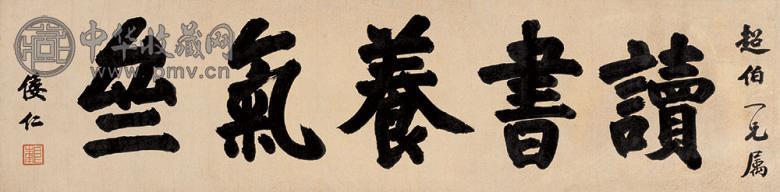 超伯一兄属
讀書養氣
倭仁
中华收藏网
www.pmv.cn